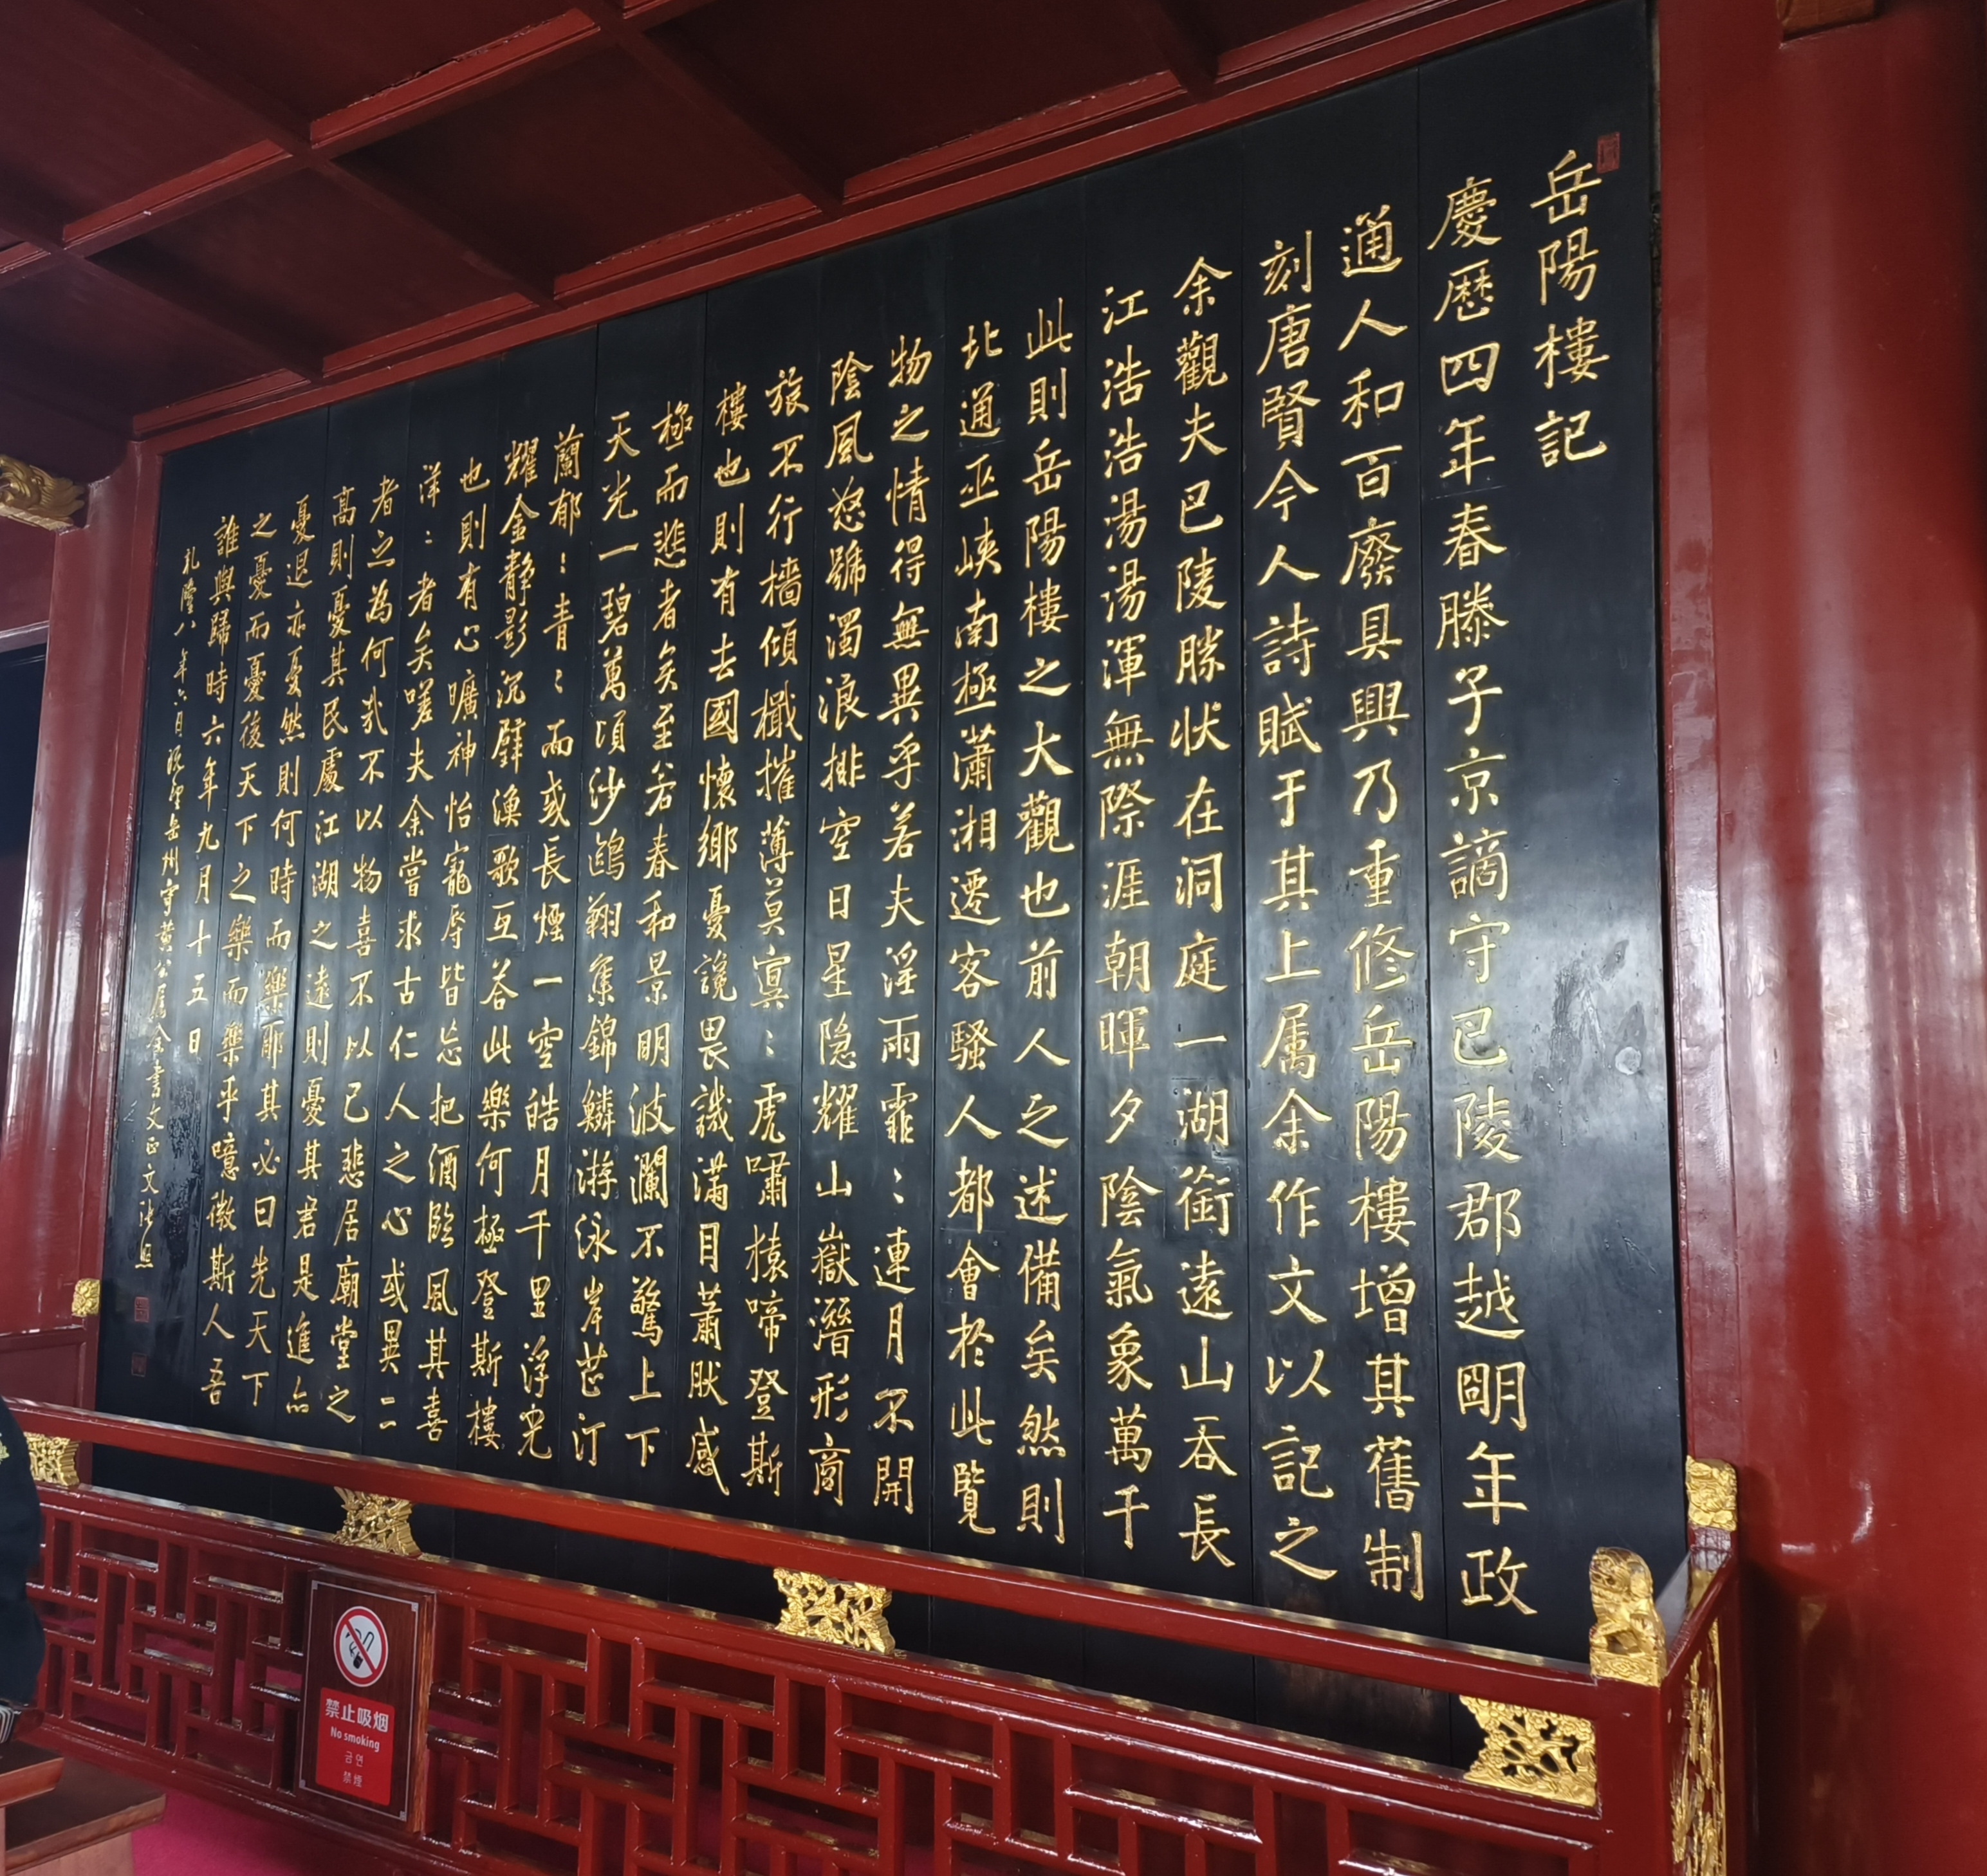 岳陽樓記
慶暦四年春滕子京謫守巴陵郡越明年政
通人和百廢具興乃重修岳陽樓增其舊制
刻唐賢今人詩賦于其上属余作文以記之
余觀夫巴陵勝状在洞庭一湖銜遠山吞長
江浩浩湯湯渾無際涯朝暉夕陰氣象萬千
此則岳陽樓之大觀也前人之述備矣然則
北通巫峽南極瀟湘遷客騷人都會於此覽
物之情得無異乎若夫淫雨霏〻連月不開
陰風怒號濁浪排空日星隐耀山嶽潛形商
旅不行檣傾檝摧薄莫冥〻虎嘯猿啼登斯
樓也則有去國懷鄉憂讒畏譏滿目蕭然感
極而悲者矣至若春和景明波瀾不驚上下
天光一碧萬頃沙鷗翔集錦鱗游泳岸芷汀
蘭郁〻青〻而或長煙一空皓月千里浮光
耀金静影沉璧漁歌互答此樂何極登斯樓
也則有心曠神怡寵辱皆忘把酒臨風其喜
洋〻者矣嗟夫余嘗求古仁人之心或異二
者之為何哉不以物喜不以己悲居廟堂之
高則憂其民處江湖之遠則憂其君是進亦
憂退亦憂然則何時而樂耶其必曰先天下
之憂而憂後天下之樂而樂乎噫微斯人吾
誰與歸時六年九月十五日
乾隆八年六月既望岳州守黄公屬余書文正文張照
禁止吸烟
No smoking
금연
禁煙